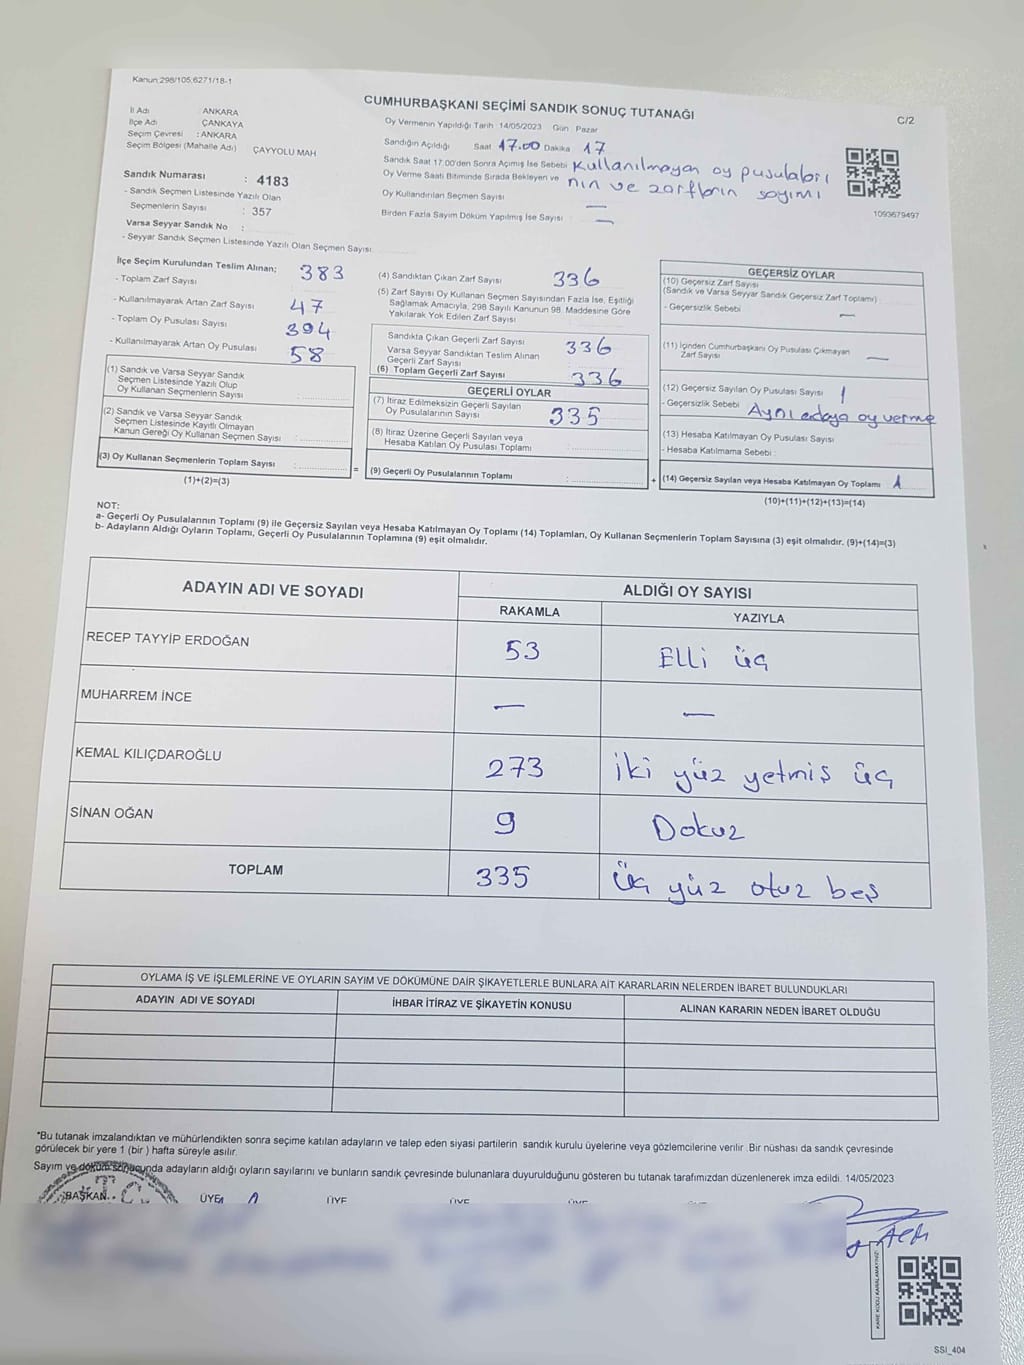 Kanun:298/105,6271/18-1
CUMHURBAŞKANI SEÇİMİ SANDIK SONUÇ TUTANAĞI
C/2
İl Adı : ANKARA
İlçe Adı : ÇANKAYA
Seçim Çevresi : ANKARA
Seçim Bölgesi (Mahalle Adı) : ÇAYYOLU MAH
Sandık Numarası : 4183
- Sandık Seçmen Listesinde Yazılı Olan
Seçmenlerin Sayısı : 357
Varsa Seyyar Sandık No :
- Seyyar Sandık Seçmen Listesinde Yazılı Olan Seçmen Sayısı:
Oy Vermenin Yapıldığı Tarih 14/05/2023 Gün Pazar
Sandığın Açıldığı Saat 17.00 Dakika 17
Sandık Saat 17:00'den Sonra Açımış İse Sebebi Kullanılmayan oy pusulaları
Oy Verme Saati Bitiminde Sırada Bekleyen ve nın ve zarfların sayımı
Oy Kullandırılan Seçmen Sayısı : —
Birden Fazla Sayım Döküm Yapılmış İse Sayısı : —
1093679497
İlçe Seçim Kurulundan Teslim Alınan;
- Toplam Zarf Sayısı 383
- Kullanılmayarak Artan Zarf Sayısı 47
- Toplam Oy Pusulası Sayısı 394
- Kullanılmayarak Artan Oy Pusulası 58
(1) Sandık ve Varsa Seyyar Sandık
Seçmen Listesinde Yazılı Olup
Oy Kullanan Seçmenlerin Sayısı :
(2) Sandık ve Varsa Seyyar Sandık
Seçmen Listesinde Kayıtlı Olmayan
Kanun Gereği Oy Kullanan Seçmen Sayısı :
(3) Oy Kullanan Seçmenlerin Toplam Sayısı :
(1)+(2)=(3)
(4) Sandıktan Çıkan Zarf Sayısı 336
(5) Zarf Sayısı Oy Kullanan Seçmen Sayısından Fazla İse, Eşitliği
Sağlamak Amacıyla, 298 Sayılı Kanunun 98. Maddesine Göre
Yakılarak Yok Edilen Zarf Sayısı
Sandıkta Çıkan Geçerli Zarf Sayısı 336
Varsa Seyyar Sandıktan Teslim Alınan
Geçerli Zarf Sayısı :
(6) Toplam Geçerli Zarf Sayısı 336
GEÇERLİ OYLAR
(7) İtiraz Edilmeksizin Geçerli Sayılan
Oy Pusulalarının Sayısı 335
(8) İtiraz Üzerine Geçerli Sayılan veya
Hesaba Katılan Oy Pusulası Toplamı :
= (9) Geçerli Oy Pusulalarının Toplamı :
GEÇERSİZ OYLAR
(10) Geçersiz Zarf Sayısı
(Sandık ve Varsa Seyyar Sandık Geçersiz Zarf Toplamı)
- Geçersizlik Sebebi —
(11) İçinden Cumhurbaşkanı Oy Pusulası Çıkmayan
Zarf Sayısı —
(12) Geçersiz Sayılan Oy Pusulası Sayısı 1
- Geçersizlik Sebebi Aynı adaya oy verme
(13) Hesaba Katılmayan Oy Pusulası Sayısı
- Hesaba Katılmama Sebebi :
+ (14) Geçersiz Sayılan veya Hesaba Katılmayan Oy Toplamı 1
(10)+(11)+(12)+(13)=(14)
NOT:
a- Geçerli Oy Pusulalarının Toplamı (9) ile Geçersiz Sayılan veya Hesaba Katılmayan Oy Toplamı (14) Toplamları, Oy Kullanan Seçmenlerin Toplam Sayısına (3) eşit olmalıdır. (9)+(14)=(3)
b- Adayların Aldığı Oyların Toplamı, Geçerli Oy Pusulalarının Toplamına (9) eşit olmalıdır.
ADAYIN ADI VE SOYADI ALDIĞI OY SAYISI
RAKAMLA YAZIYLA
RECEP TAYYİP ERDOĞAN 53 Elli üç
MUHARREM İNCE — —
KEMAL KILIÇDAROĞLU 273 iki yüz yetmiş üç
SİNAN OĞAN 9 Dokuz
TOPLAM 335 üç yüz otuz beş
OYLAMA İŞ VE İŞLEMLERİNE VE OYLARIN SAYIM VE DÖKÜMÜNE DAİR ŞİKAYETLERLE BUNLARA AİT KARARLARIN NELERDEN İBARET BULUNDUKLARI
ADAYIN ADI VE SOYADI İHBAR İTİRAZ VE ŞİKAYETİN KONUSU ALINAN KARARIN NEDEN İBARET OLDUĞU
*Bu tutanak imzalandıktan ve mühürlendikten sonra seçime katılan adayların ve talep eden siyasi partilerin sandık kurulu üyelerine veya gözlemcilerine verilir. Bir nüshası da sandık çevresinde
görülecek bir yere 1 (bir ) hafta süreyle asılır.
Sayım ve döküm sonucunda adayların aldığı oyların sayılarını ve bunların sandık çevresinde bulunanlara duyurulduğunu gösteren bu tutanak tarafımızdan düzenlenerek imza edildi. 14/05/2023
BAŞKAN ÜYE ÜYE ÜYE ÜYE
T.C.
KARE KODU KARALAMAYINIZ!
SSI_404